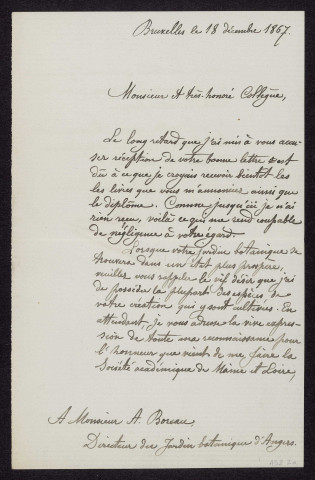 Bruxelles le 18 décembre 1867.
Monsieur et très-honoré Collègue,
Le long retard que j'ai mis à vous accu-
ser réception de votre bonne lettre est
dû à ce que je croyais recevoir bientôt les
les livres que vous m'annoncez ainsi que
le diplôme. Comme jusqu'ici je n'ai
rien reçu, voilà ce qui me rend coupable
de négligence à votre égard.
Lorsque votre jardin botanique se
trouvera dans un état plus prospère,
veuillez vous rappeler le vif désir que j'ai
de posséder la plupart des espèces de
votre création qui y sont cultivées. En
attendant, je vous adresse la vive expres-
sion de toute ma reconnaissance pour
l'honneur que vient de me faire la
Société académique de Maine et Loire,
A Monsieur A. Boreau,
Directeur du Jardin botanique d'Angers.